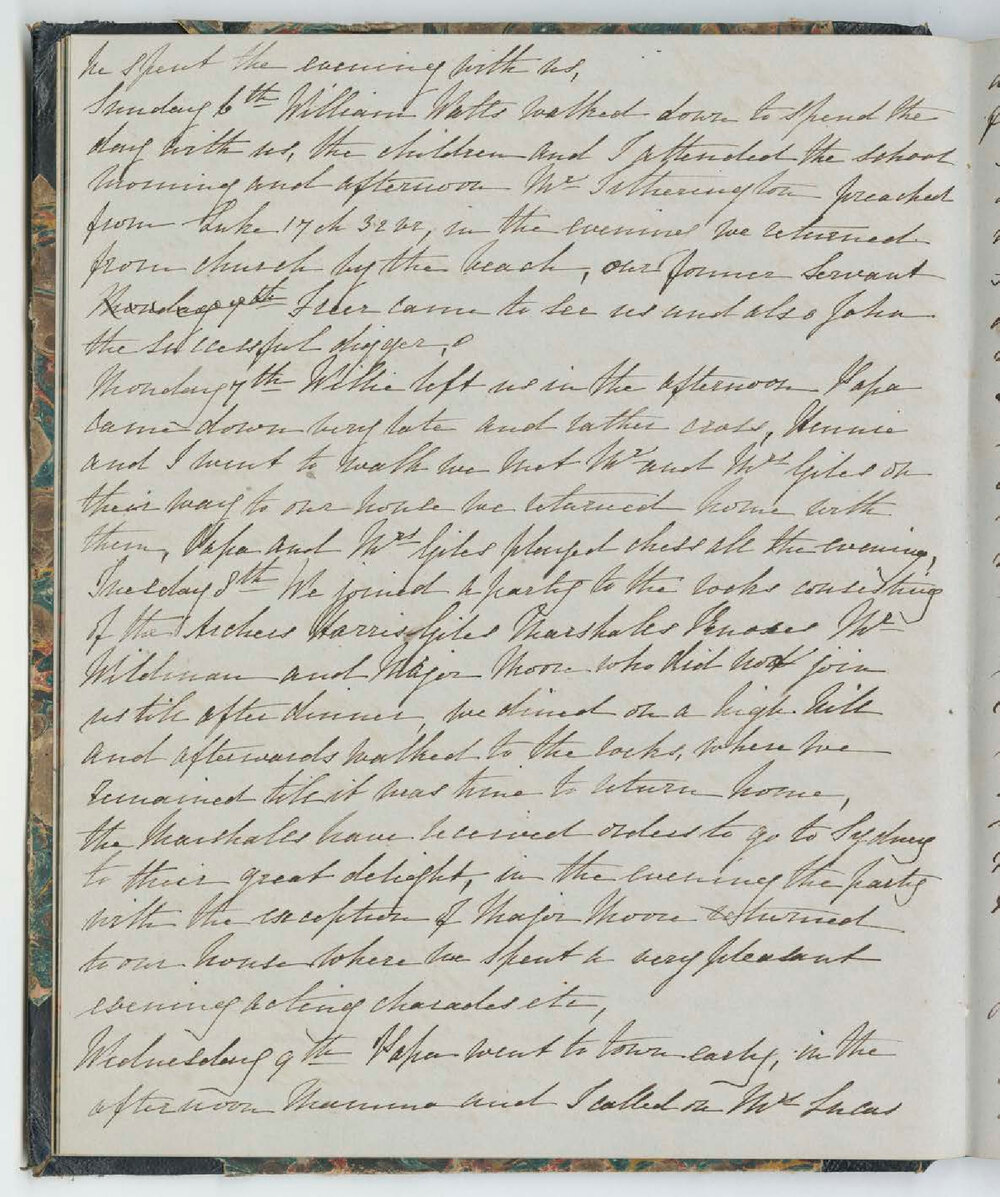 he spent the evening with us,
Sunday 6th William Watts walked down to spend the
day with us, the children and I attended the school
morning and afternoon Mr Titherington preached
from Luke 17 ch 32 vr, in the evening we returned
from church by the beach, our former servant
Monday 7th Freer came to see us and also John
the successful digger,
Monday 7th Willie left us in the afternoon Papa
came down very late and rather cross, Minnie
and I went to walk we met Mr and Mrs Giles on
their way to our house we returned home with
them, Papa and Mrs Giles played chess all the evening,
Tuesday 8th We joined a party to the rocks consisting
of the Archers Harris Giles Marshalls Knoxes Mr
Wildman and Major Moore who did not join
us till after dinner, we dined on a high hill
and afterwards walked to the rocks, where we
remained till it was time to return home,
the Marshalls have received orders to go to Sydney
to their great delight, in the evening the party
with the exception of Major Moore returned
to our house where we spent a very pleasant
evening acting charades etc,
Wednesday 9th Papa went to town early, in the
afternoon Mamma and I called on Mrs Lucas